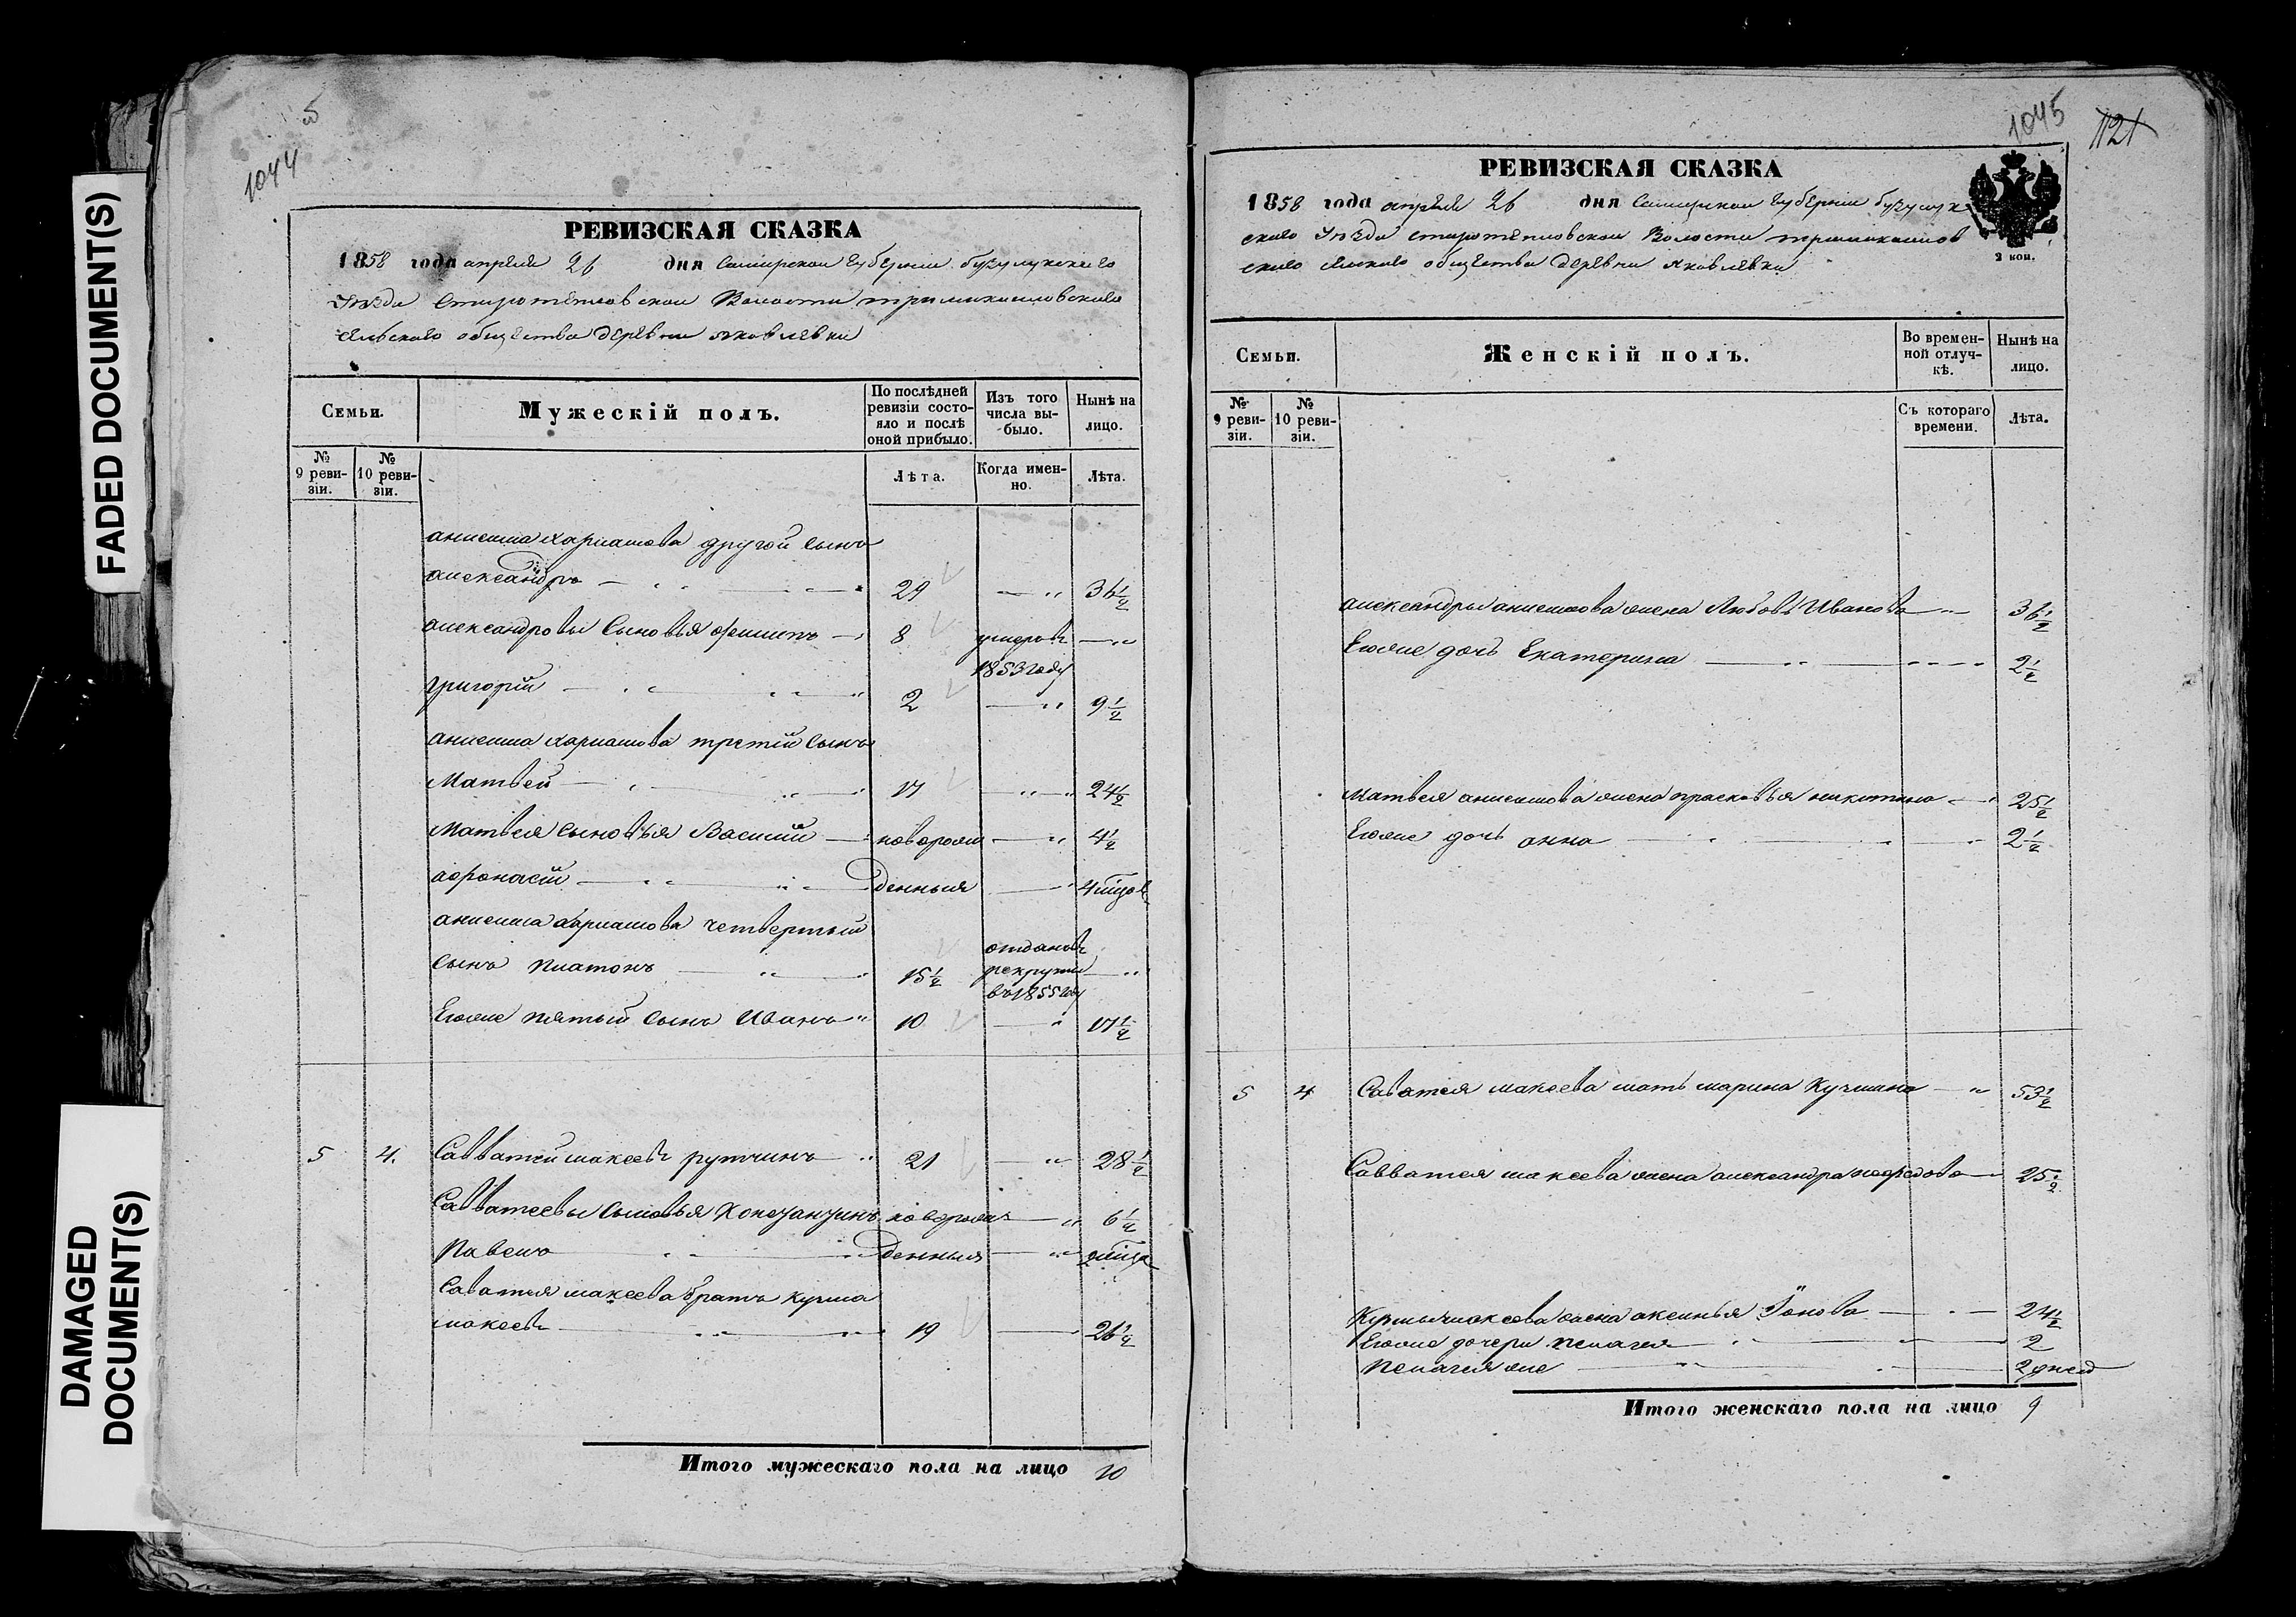 FADED DOCUMENT(S)
DAMAGED
DOCUMENT(S)
5
1044
РЕВИЗСКАЯ СКАЗКА
1858 года апреля 26 дня Самарской губернии бузулукскаго
уезда Старотепловской Волости
сельскаго общества деревни яковлевки
Семьи.
Мужескій полъ.
По послѣдней
ревизіи состо-
яло и послѣ
оной прибыло.
Изъ того
числа вы-
было.
Нынѣ на
лицо.
№
9 реви-
зіи.
№
10 реви-
зіи.
Лѣта.
Когда имен-
но.
Лѣта.
анисима другой сынъ
александръ 29 36½
александровы Сыновья филипъ 8 умеръ въ
1853 году
григорій 2 9½
анисима третій сынъ
Матвей 17 24½
Матвея сыновья Василій новорож 4½
афонасій денныя 4 мѣсяцов
анисима четвертый
сынъ платонъ 15½ отданъ въ рекруты въ 1855 году
Егоже пятый сынъ Иванъ 10 17½
5 4. Савватей макеевъ рутчинъ 21 28½
Савватеевы сыновья новорож 6½
Павелъ денныя 2 мѣсяца
Саватея макеева братъ кузма
макеевъ 19 26½
Итого мужескаго пола на лицо 10
1045
1121
РЕВИЗСКАЯ СКАЗКА
1858 года апреля 26 дня Самарской губернии бузулук
скаго уезда старотепловской Волости
скаго сельскаго общества деревни яковлевки
2 коп.
Семьи.
Женскій полъ.
Во времен-
ной отлуч-
кѣ.
Нынѣ на
лицо.
№
9 реви-
зіи.
№
10 реви-
зіи.
Съ котораго
времени.
Лѣта.
александры анисимова жена Любовь Иванова 36½
Егоже дочь Екатерина 2½
Матвея анисимова жена прасковья никитина 25½
Егоже дочь анна 2½
5 4 Саватея макеева мать марина Кузмина 53½
Савватея макеева жена александра 25½
Кузмы макеева жена аксинья Іонова 24½
Егоже дочери пелагея 2
Пелагея же 2 дней
Итого женскаго пола на лицо 9